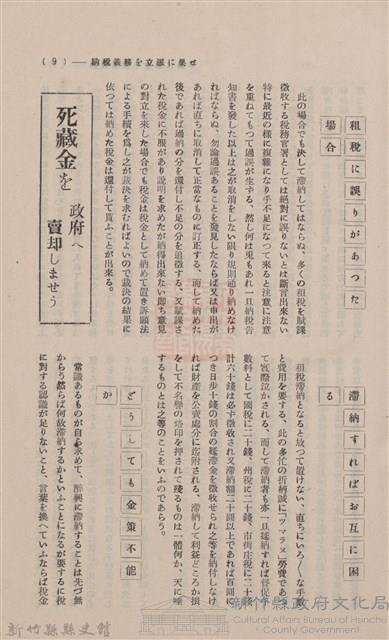 (9)——納税義務を立派に果せ
租税に誤りがあつた
場合
此の場合でも決して滞納してはならぬ、多くの租税を賦課
徴収する税務官署としては絶對に誤りないとは斷言出來ない
特に最近の様に複雜になり手不足になつて來ると注意に注意
を重ねてもつて過誤が生ずる、然し何は兎もあれ一旦納税告
知書を發した以上は之が取消をしない限り規則通り納めなけ
ればならぬ、勿論過誤あることを發見したならば又は申出が
あれば直ちに取消して正當なものに訂正する、而して納めた
後であれば過納の分を還付し不足の分を追徴する、又賦課さ
れた税金に不服があり說明を求めたが納得出來ない卽ち意見
の對立を來した場合でも税金は税金として納めて置き訴願法
による手續を爲し之が裁決を求むればよいので裁決の結果に
依つては納めた税金は還付して貰ふことが出來る。
死藏金を
政府へ
賣却しませう
滞納すればお互に困
る
租税滞納となると放つて置けない、直ちにいろ〳〵な手數
と費用を要する、此の多忙の折柄誠に「ツマラヌ」勞費であ
つて實際泣かされる、而して滞納者も亦一旦遅納すれば督促
數料として國税に二十錢、州税に二十錢、市街庄税に二十錢
計六十錢は必ず徴收され又滞納額二十圓以上であれば百圓に
つき日步十錢の割合の延滞金を徴收せられ之等を納付しなけ
れば財產を公賣處分に迄附される、滞納して利益どころか損
をして不名譽の烙印を押されて殘るものは一體何か、天に唾
するものとは之等のことをいふのであらう。
どうしても金策不能
か
常識あるものが自ら求めて、醉興に滞納することは先づ無
からう然らば何故滞納するかといふことになるが要するに税
に對する認識が足りないこと、言葉を換へていふならば税金
新竹縣縣史館
新竹縣政府文化局
Cultural Affairs Bureau of Hsinchu
County Government